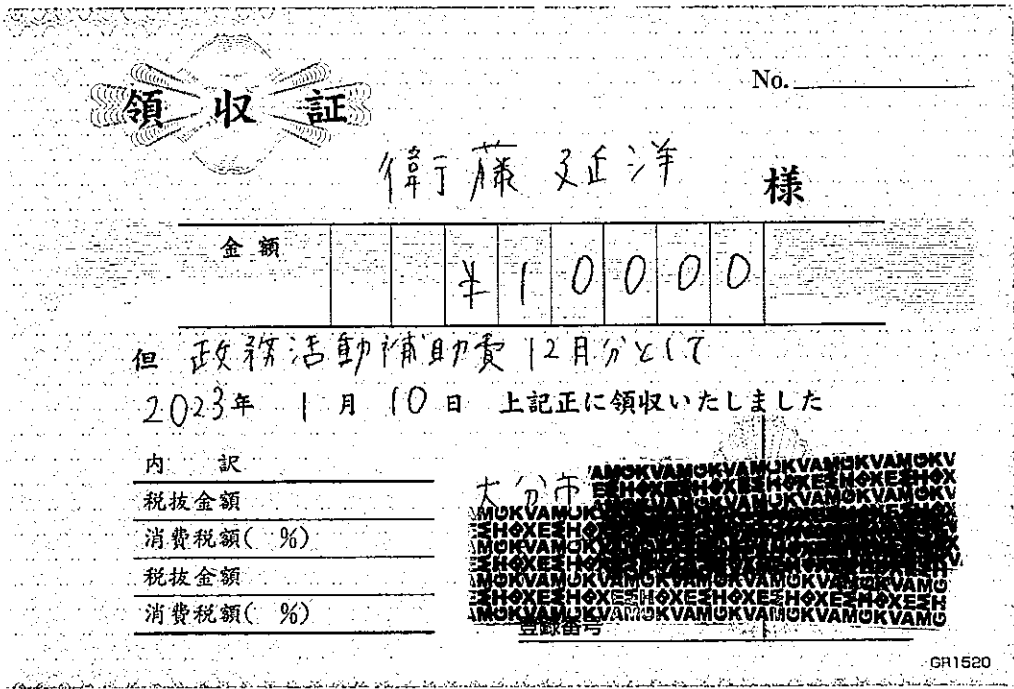 領収証
No.
衛藤延洋 様
金額 ¥10000
但 政務活動補助費12月分として
2023年 1月10日 上記正に領収いたしました
内 訳
税抜金額
消費税額( %)
税抜金額
消費税額( %)
大分市
登録番号
GR1520